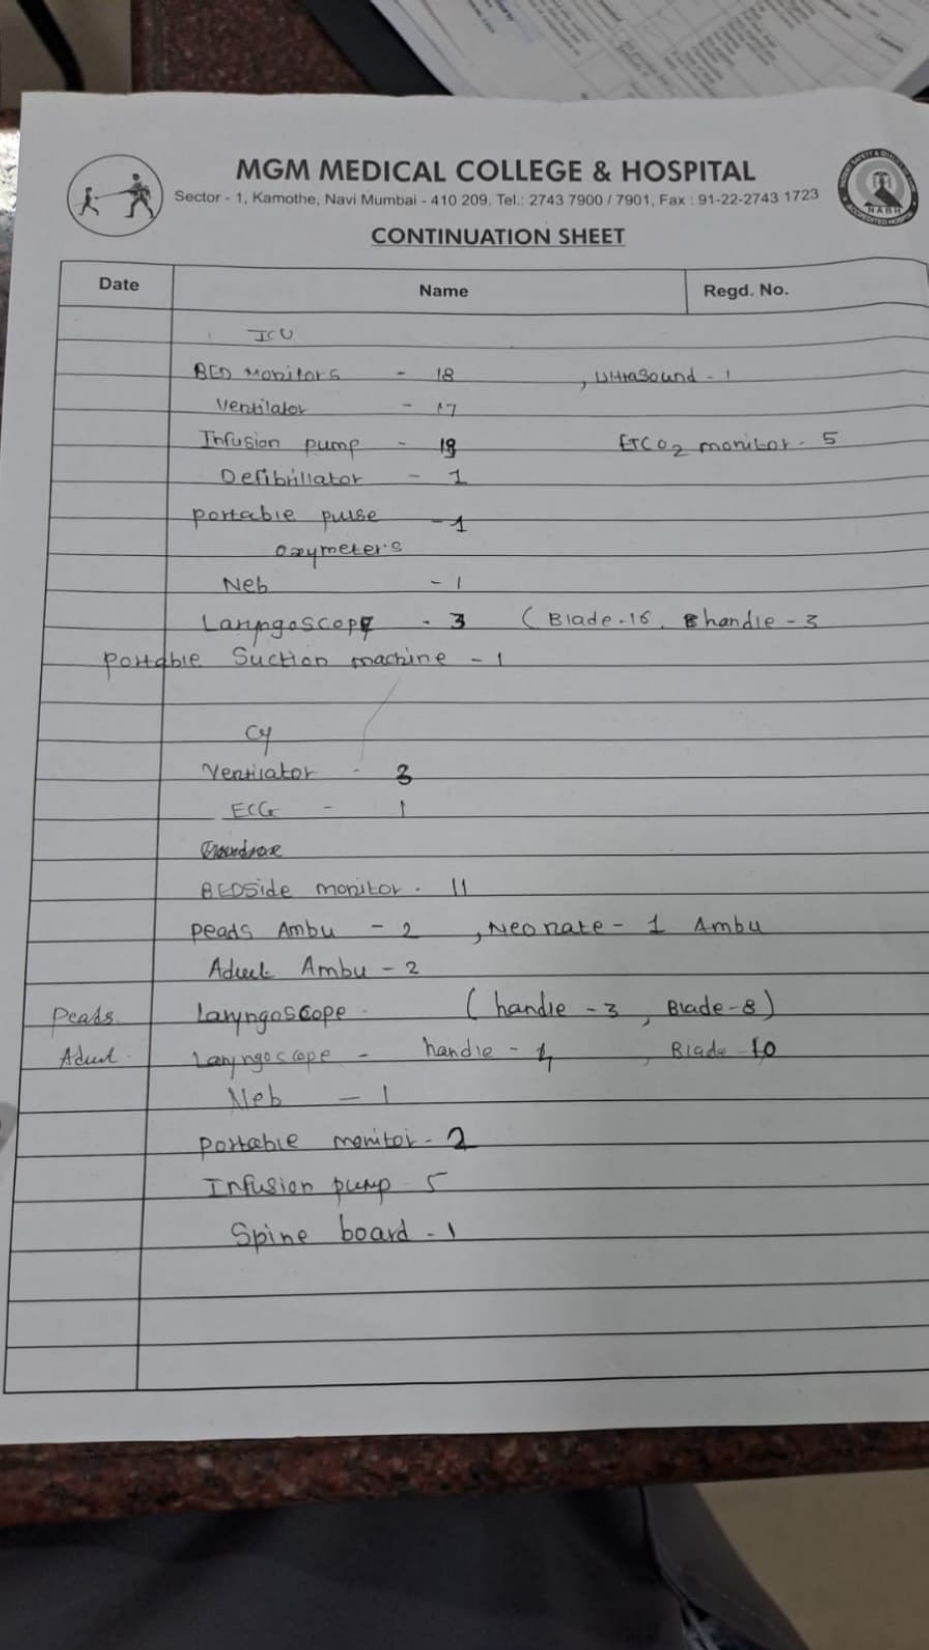 MGM MEDICAL COLLEGE & HOSPITAL
Sector - 1, Kamothe, Navi Mumbai - 410 209. Tel.: 2743 7900 / 7901, Fax : 91-22-2743 1723
CONTINUATION SHEET
Date Name Regd. No.
ICU
BED Monitors - 18 , Ultrasound - 1
Ventilator - 17
Infusion pump - 18 ETCO2 monitor - 5
Defibrillator - 1
portable pulse - 1
oxymeters
Neb - 1
Laryngoscope - 3 ( Blade - 16, handle - 3
portable Suction machine - 1
Cy
Ventilator - 3
ECG - 1
BEDSide monitor - 11
peads Ambu - 2 , Neonate - 1 Ambu
Adult Ambu - 2
Peads. Laryngoscope - ( handle - 3 , Blade - 8 )
Adult - Laryngoscope - handle - 4 , Blade - 10
Neb - 1
portable monitor - 2
Infusion pump - 5
Spine board - 1
NABH